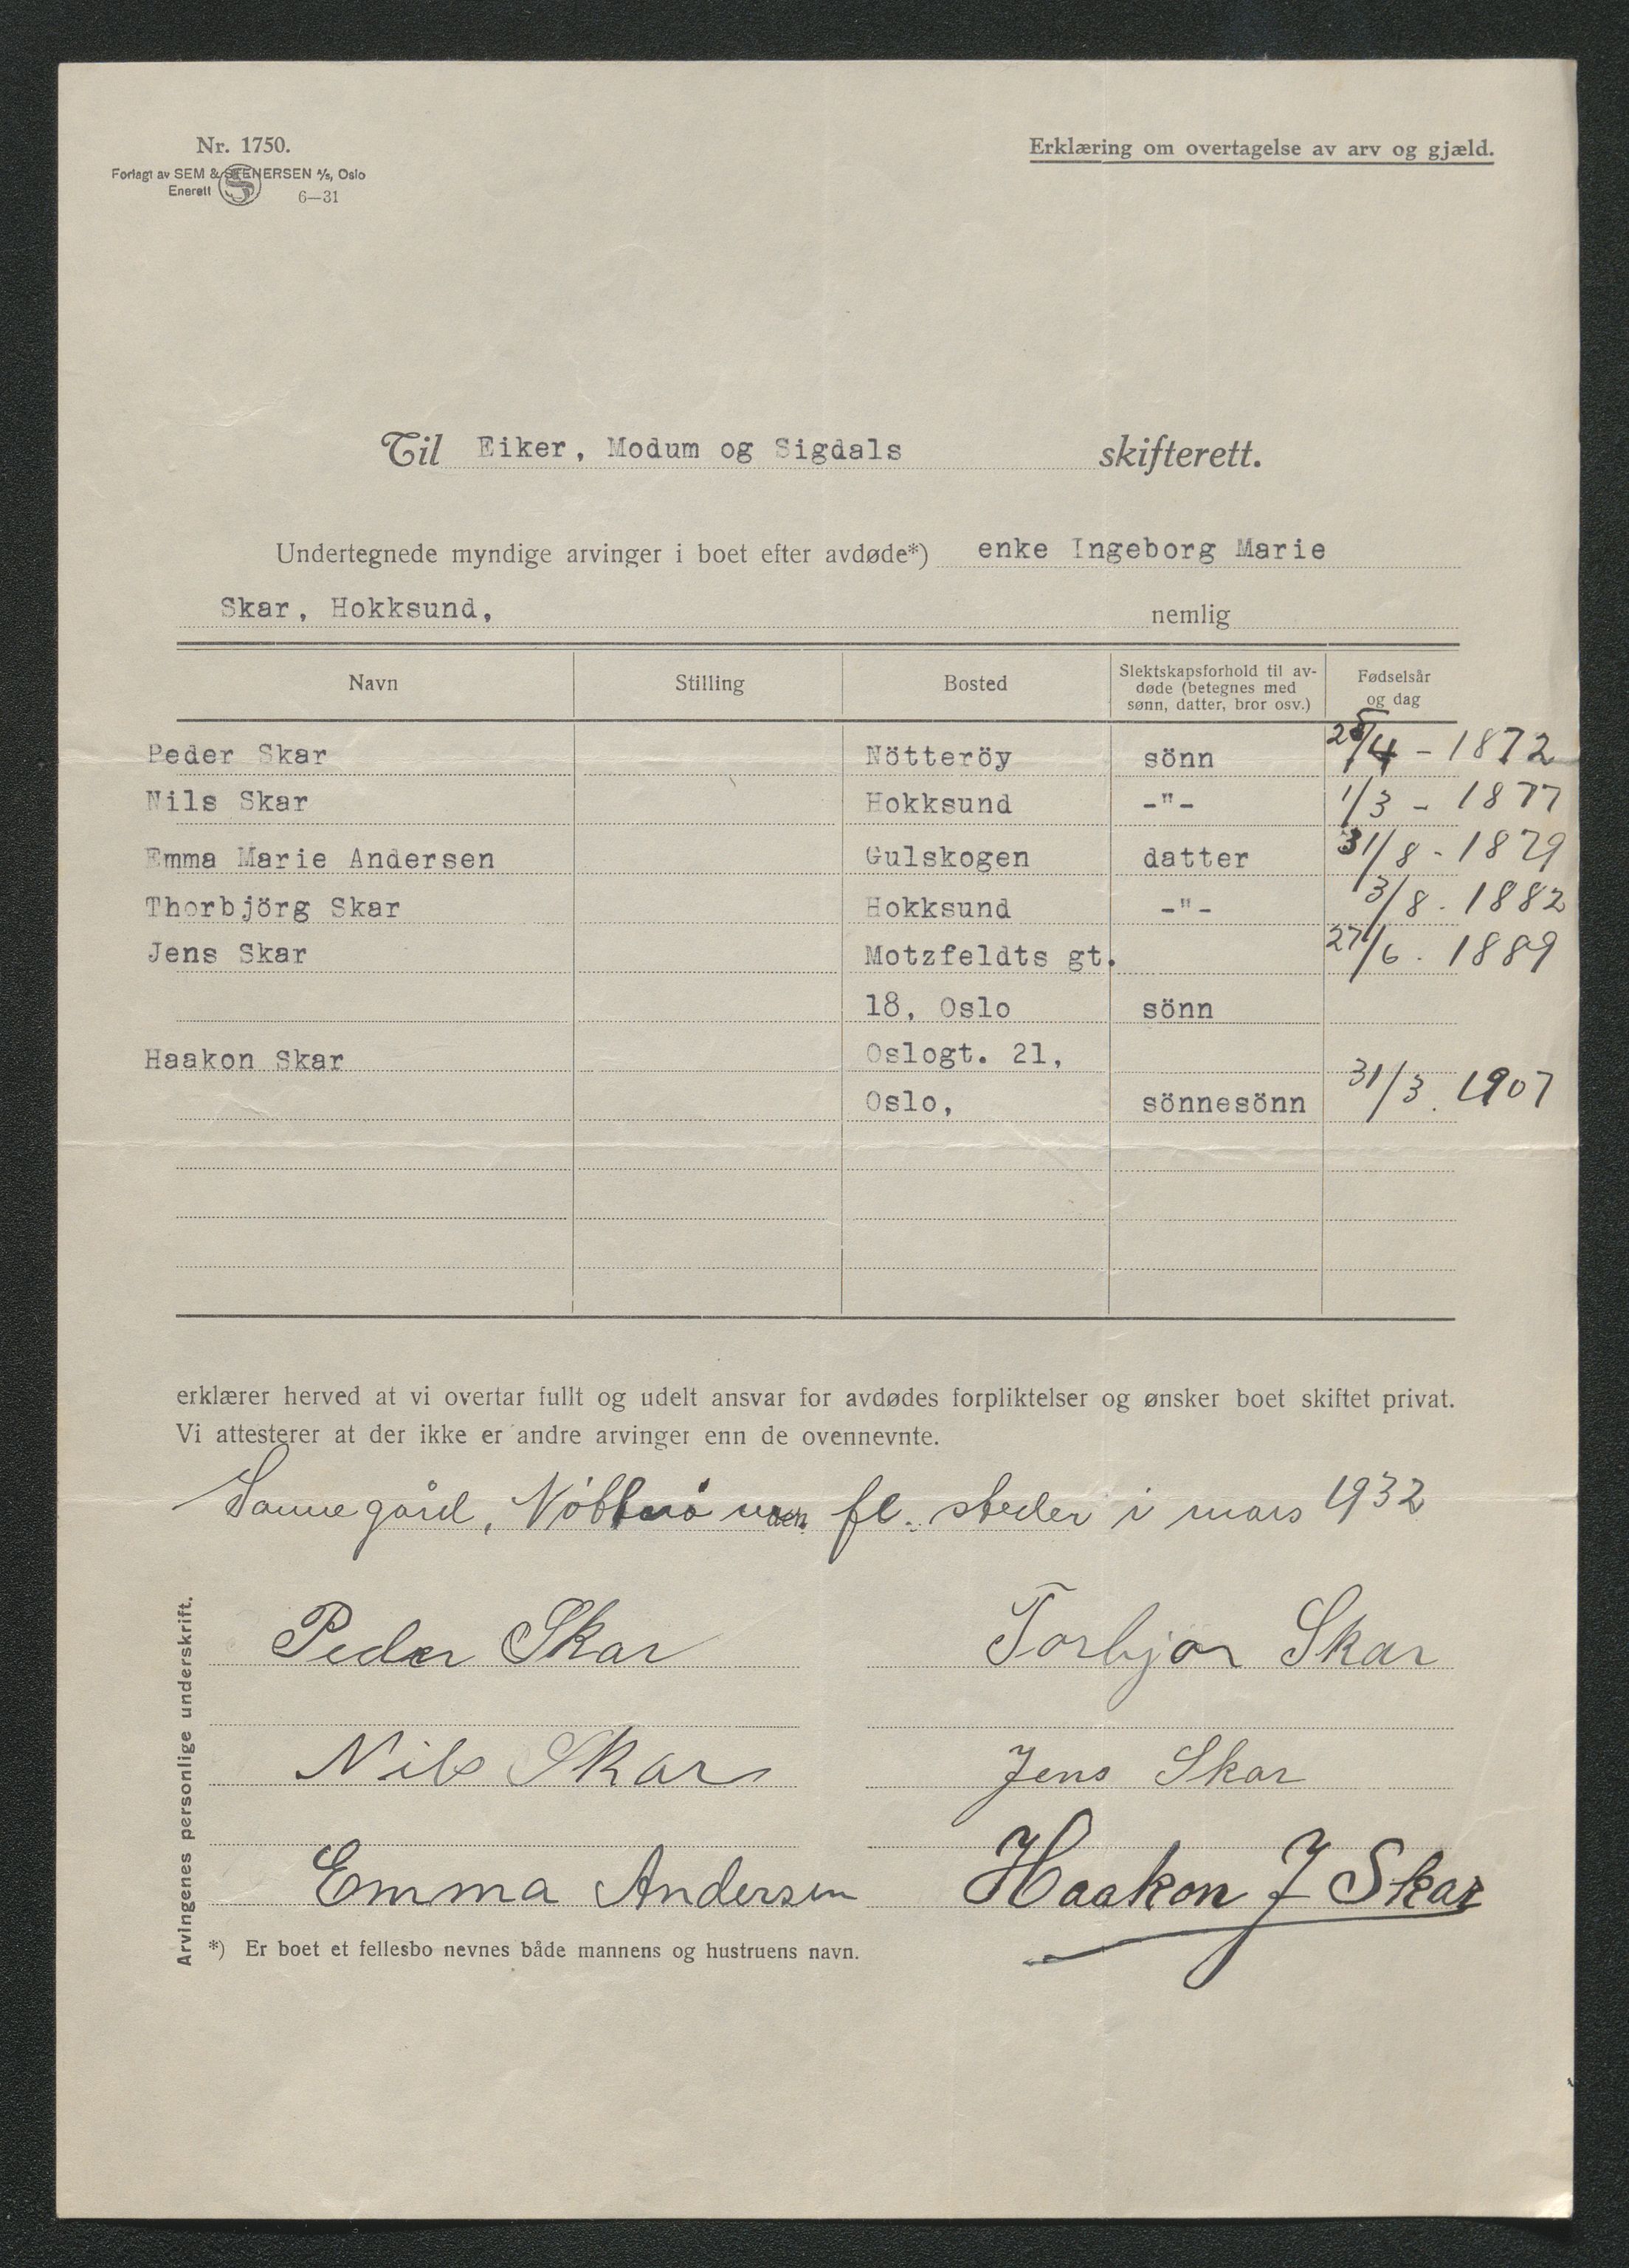 Nr. 1750.
Forlagt av SEM & STENERSEN A/s, Oslo
Enerett
6—31
Erklæring om overtagelse av arv og gjæld.
Til Eiker, Modum og Sigdals skifterett.
Undertegnede myndige arvinger i boet efter avdøde*) enke Ingeborg Marie
Skar, Hokksund, nemlig
Navn Stilling Bosted Slektskapsforhold til av-døde (betegnes med sønn, datter, bror osv.) Fødselsår og dag
Peder Skar Nötteröy sönn /4 - 1872
Nils Skar Hokksund -"- 1/3 - 1877
Emma Marie Andersen Gulskogen datter 31/8 - 1879
Thorbjörg Skar Hokksund -"- 3/8 . 1882
Jens Skar Motzfeldts gt. 27/6 . 1889
18, Oslo sönn
Haakon Skar Oslogt. 21,
Oslo, sönnesönn 31/3 . 1907
erklærer herved at vi overtar fullt og udelt ansvar for avdødes forpliktelser og ønsker boet skiftet privat.
Vi attesterer at der ikke er andre arvinger enn de ovennevnte.
fl. steder i mars 1932
Arvingenes personlige underskrift.
Peder Skar
Torbjør Skar
Nils Skar
Jens Skar
Emma Andersen
Haakon J Skar
*) Er boet et fellesbo nevnes både mannens og hustruens navn.